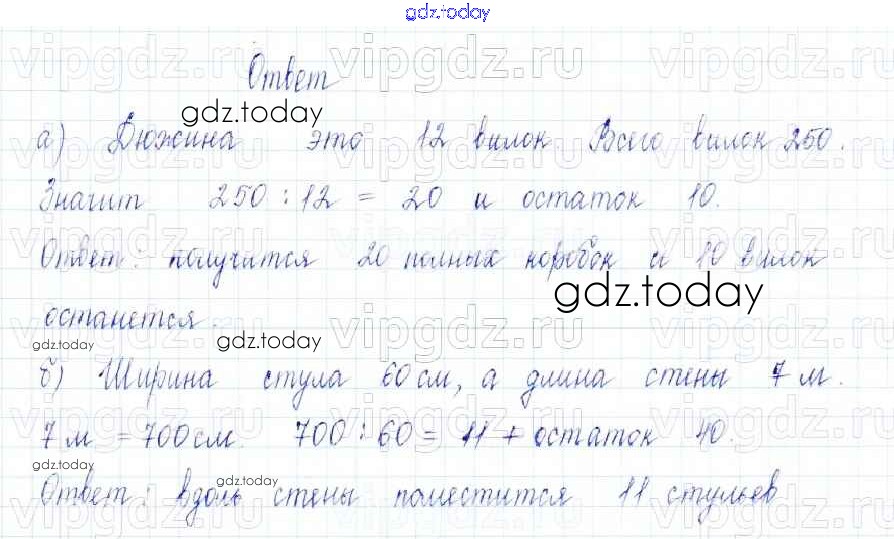 gdz.today
Ответ
gdz.today
а) Дюжина это 12 вилок. Всего вилок 250.
Значит 250 : 12 = 20 и остаток 10.
Ответ: получится 20 полных коробок и 10 вилок
gdz.today
останется.
gdz.today
gdz.today
б) Ширина стула 60 см, а длина стены 7 м.
7 м = 700 см. 700 : 60 = 11 + остаток 40.
gdz.today
gdz.today
Ответ: вдоль стены поместится 11 стульев
vipgdz.ru vipgdz.ru vipgdz.ru